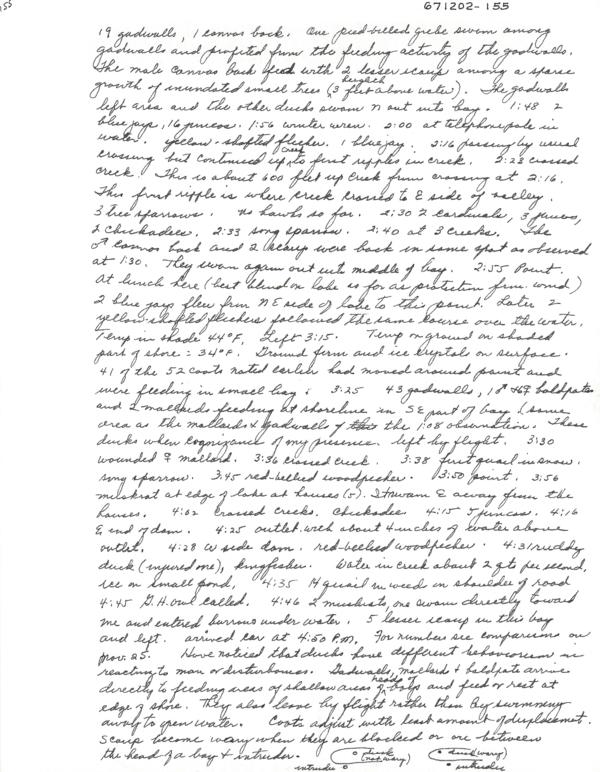 55
671202-155
19 gadwalls, 1 canvas back. One pied-billed grebe swam among
gadwalls and profited from the feeding activity of the gadwalls.
The male canvas back feed with 2 lesser scaup among a sparse
growth of inundated small trees (3 feet height above water). The gadwalls
left area and the other ducks swam N out into bay. 1:48 2
blue jays, 16 juncos. 1:56 winter wren. 2:00 at telephone pole in
water. yellow-shafted flicker. 1 blue jay. 2:16 passing by usual
crossing but continued up creek to first ripples in creek. 2:23 crossed
creek. This is about 600 feet up creek from crossing at 2:16.
This first ripple is where creek crossed to E side of valley.
3 tree sparrows. No hawks so far. 2:30 2 cardinals, 3 juncos,
2 chickadees. 2:33 song sparrow. 2:40 at 3 creeks. The
♂ canvas back and 2 scaup were back in same spot as observed
at 1:30. They swam again out into middle of bay. 2:55 Point.
At lunch here (best blind on lake is for as protection from wind)
2 blue jays flew from NE side of lake to the point. Later 2
yellow-shafted flickers followed the same course over the water.
Temp in shade 44°F. Left 3:15. Temp on ground on shaded
part of shore = 34°F. Ground firm and ice crystals on surface.
41 of the 52 coots noted earlier had moved around point and
were feeding in small bay. 3:25 43 gadwalls, 1♂ baldpates
and 2 mallards feeding at shoreline in SE part of bay (same
area as the mallards & gadwalls of the 1:08 observation. These
ducks when cognizance of my presence left by flight. 3:30
wounded ♀ mallard. 3:36 crossed creek. 3:38 first quail in snow.
song sparrow. 3:45 red-bellied woodpecker. 3:50 point. 3:56
muskrat at edge of lake at houses (5). It swam E away from the
houses. 4:02 crossed creeks. Chickadee 4:15 5 juncos. 4:16
E end of dam. 4:25 outlet with about 4 inches of water above
outlet. 4:28 W side dam. red-bellied woodpecker. 4:31 ruddy
duck (injured one), kingfisher. Water in creek about 2 qts per second,
ice on small pond, 4:35 14 quail in weed on shoulder of road
4:45 G.H. owl called. 4:46 2 muskrats, one swam directly toward
me and entered burrow under water. 5 lesser scaup in this bay
and left. arrived car at 4:50 P.M. For numbers see comparison on
Nov. 25. Have noticed that ducks have different behaviorism in
reacting to man or disturbances. Gadwalls, mallards & baldpate arrive
directly to feeding areas of shallow areas heads of bays and feed or rest at
edge of shore. They also leave by flight rather than by swimming
away to open water. Coots adjust with least amount of displacement.
Scaup become wary when they are blocked or are between
the head of a bay & intruder.
duck (not wary)
intruder
duck (wary)
intruder